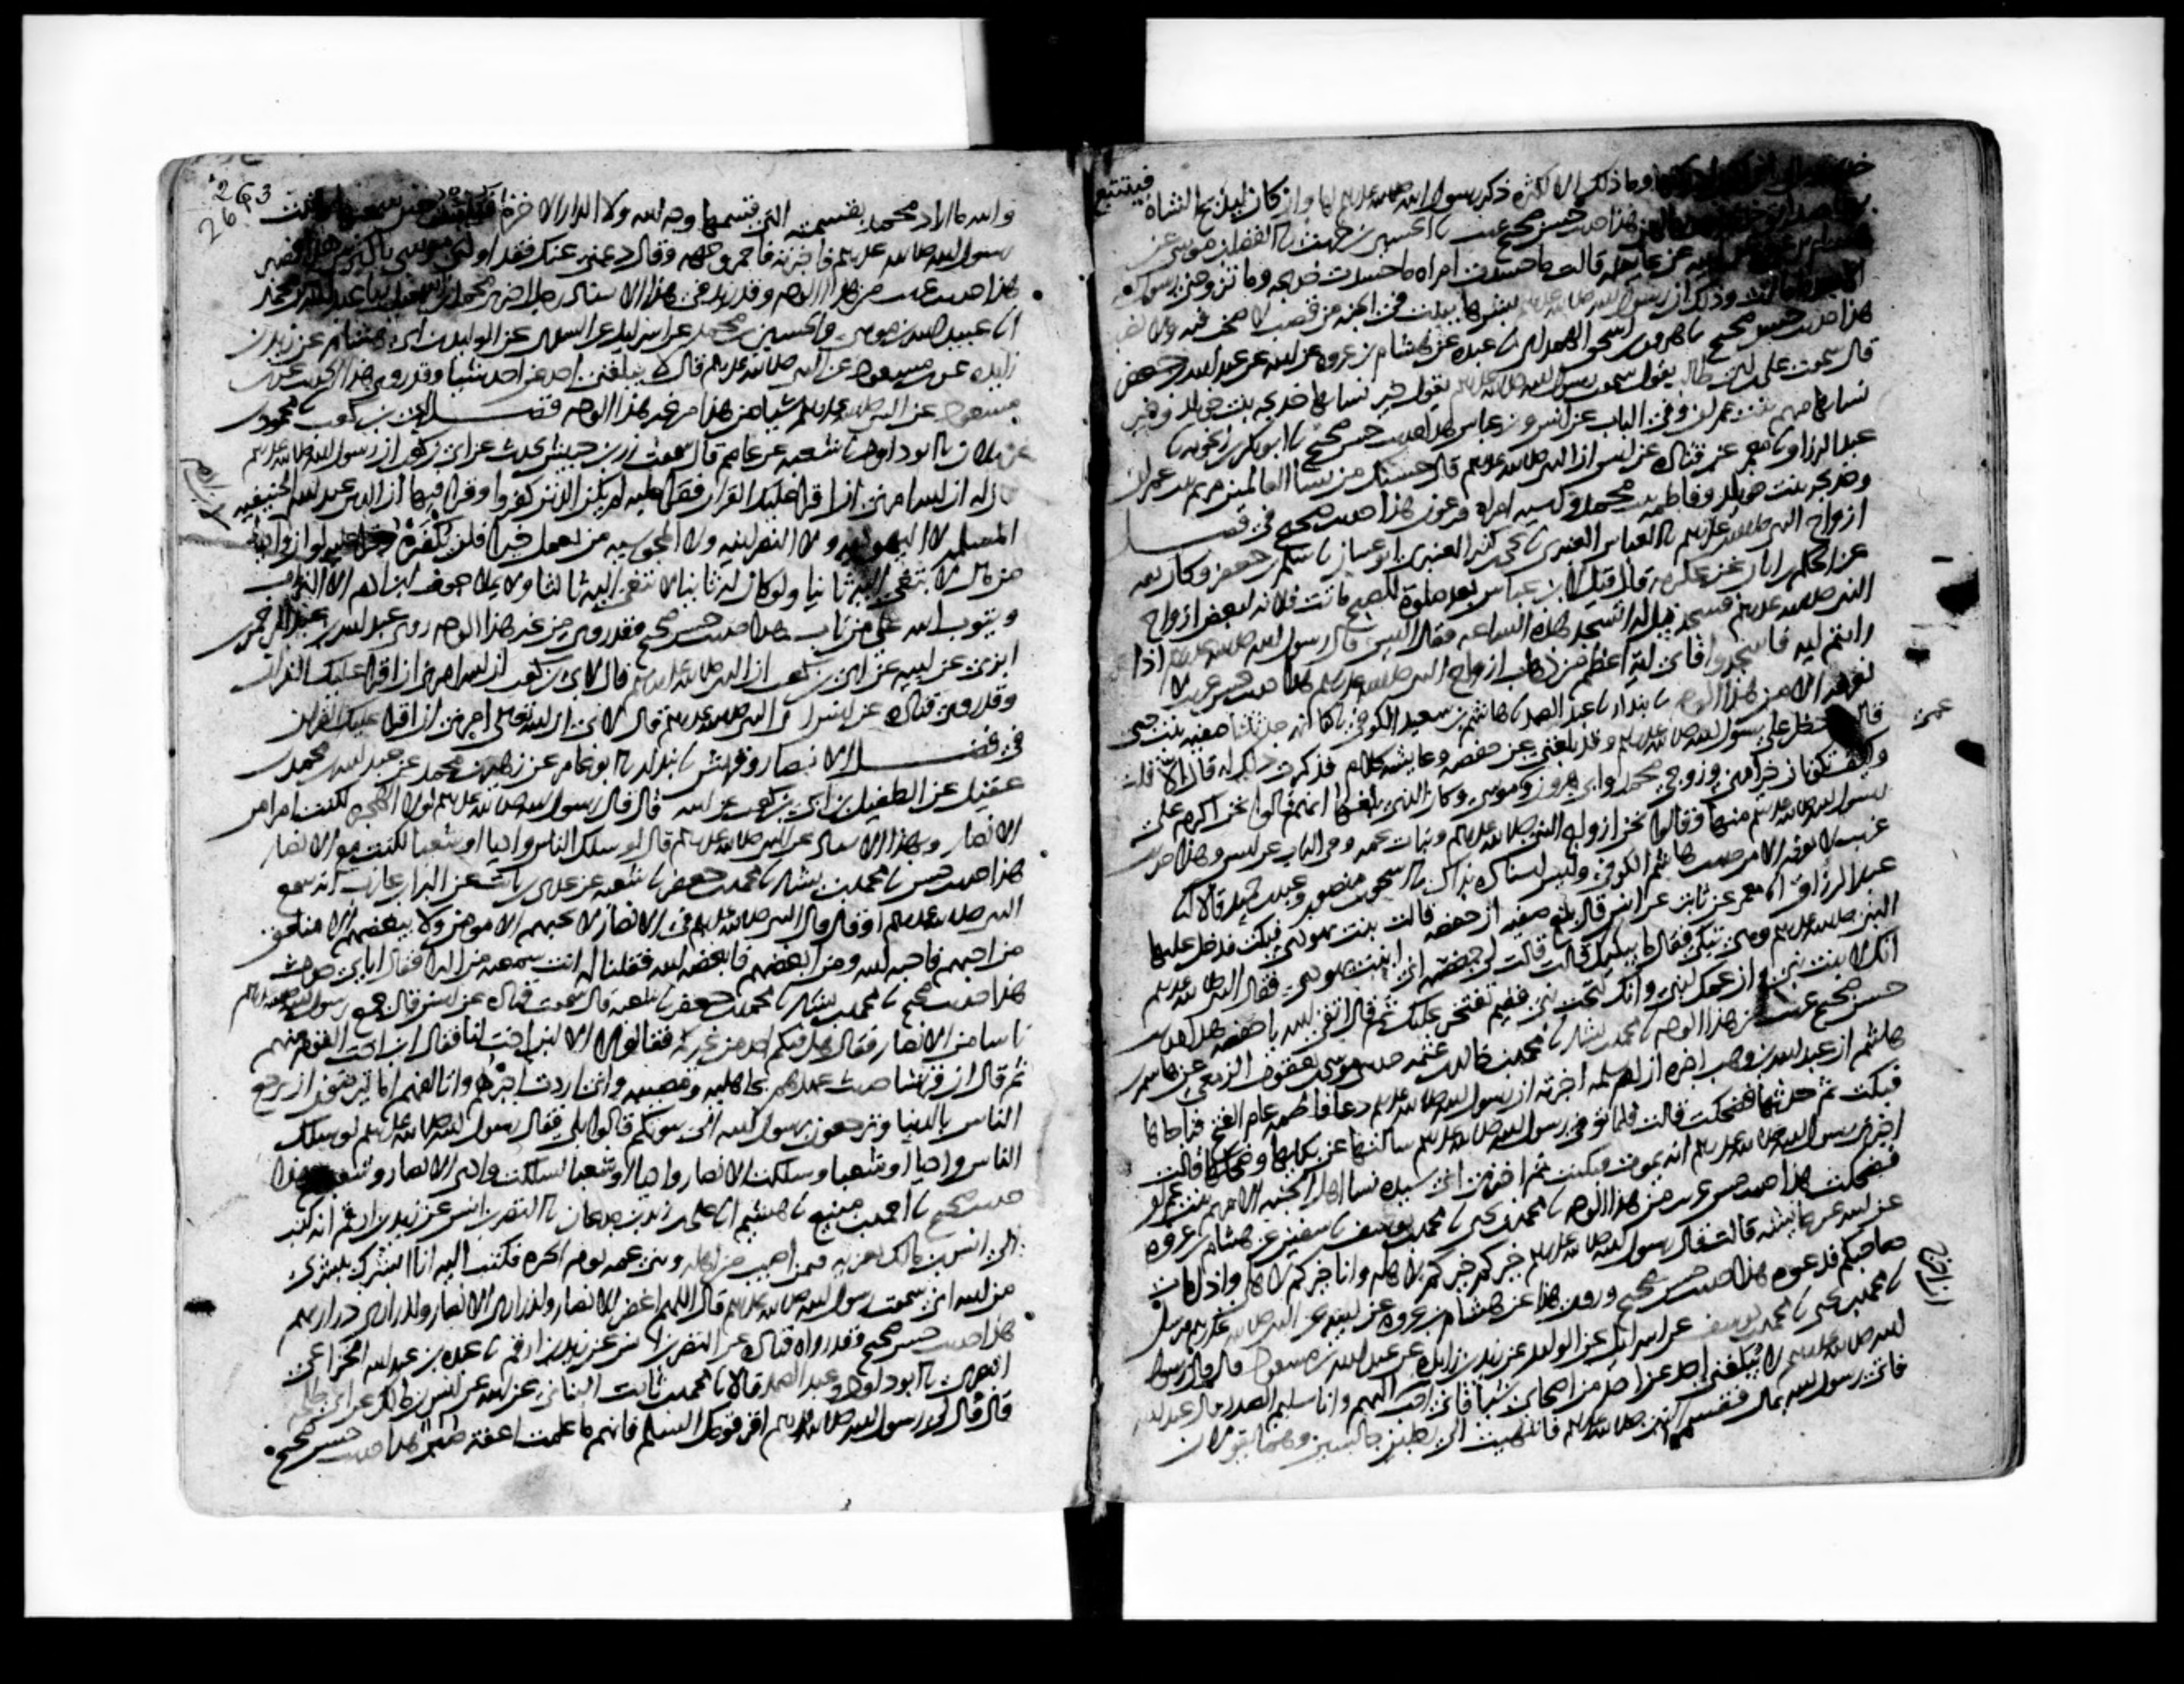 وما ذلك الا لكثرة ذكر رسول الله صلى الله عليه وسلم لها وان كان ليذبح الشاة فيتتبع
هذا حديث حسن صحيح غريب نا الحسين بن حريث نا الفضل بن موسى عن
عن عائشة قالت ما حسدت امراة ما حسدت خديجة وما تزوجني رسول الله
وذلك ان رسول الله صلى الله عليه وسلم بشرها ببيت في الجنة من قصب لا صخب فيه ولا نصب
هذا حديث حسن صحيح نا هرون بن اسحق الهمداني نا عبدة عن هشام بن عروة عن ابيه عن عبد الله بن جعفر
قال سمعت علي بن ابي طالب يقول سمعت رسول الله صلى الله عليه وسلم يقول خير نسائها خديجة بنت خويلد وخير
نسائها مريم بنت عمران وفي الباب عن انس وابن عباس هذا حديث حسن صحيح نا ابو بكر بن زنجويه نا
عبد الرزاق نا معمر عن قتادة عن انس ان النبي صلى الله عليه وسلم قال حسبك من نساء العالمين مريم بنت عمران
وخديجة بنت خويلد وفاطمة بنت محمد واسية امراة فرعون هذا حديث صحيح في فضل
ازواج النبي صلى الله عليه وسلم نا العباس العنبري نا يحيى بن كثير العنبري ابو غسان نا سلم بن جعفر وكان ثقة
عن الحكم بن ابان عن عكرمة قال قيل لابن عباس بعد صلوة الصبح ماتت فلانة لبعض ازواج
النبي صلى الله عليه وسلم فسجد قيل له اتسجد هذه الساعة فقال اليس قال رسول الله صلى الله عليه وسلم اذا
رايتم اية فاسجدوا فاي اية اعظم من ذهاب ازواج النبي صلى الله عليه وسلم هذا حديث حسن غريب لا
نعرفه الا من هذا الوجه نا بندار نا عبد الصمد نا هاشم بن سعيد الكوفي نا كنانة حدثتنا صفية بنت حيي
قالت دخل علي رسول الله صلى الله عليه وسلم وقد بلغني عن حفصة وعائشة كلام فذكرت ذلك له قال الا قلت
وكيف تكونان خيرا مني وزوجي محمد وابي هرون وعمي موسى وكان الذي بلغها انهم قالوا نحن اكرم على
رسول الله صلى الله عليه وسلم منها وقالوا نحن ازواج النبي صلى الله عليه وسلم وبنات عمه وفي الباب عن انس وهذا حديث
غريب لا نعرفه الا من حديث هاشم الكوفي وليس اسناده بذاك نا اسحق بن منصور وعبد بن حميد قالا نا
عبد الرزاق انا معمر عن ثابت عن انس قال بلغ صفية ان حفصة قالت بنت يهودي فبكت فدخل عليها
النبي صلى الله عليه وسلم وهي تبكي فقال ما يبكيك قالت قالت لي حفصة اني ابنة يهودي فقال النبي صلى الله عليه وسلم
انك لابنة نبي وان عمك لنبي وانك لتحت نبي ففيم تفتخر عليك ثم قال اتقي الله يا حفصة هذا حديث
حسن صحيح غريب من هذا الوجه نا محمد بن بشار نا محمد بن خالد بن عثمة حدثني موسى بن يعقوب الزمعي عن هاشم بن
هاشم ان عبد الله بن وهب اخبره ان ام سلمة اخبرته ان رسول الله صلى الله عليه وسلم دعا فاطمة عام الفتح فناجاها
فبكت ثم حدثها فضحكت قالت فلما توفي رسول الله صلى الله عليه وسلم سالتها عن بكائها وضحكها قالت
اخبرني رسول الله صلى الله عليه وسلم انه يموت فبكيت ثم اخبرني اني سيدة نساء اهل الجنة الا مريم بنت عمران
فضحكت هذا حديث حسن غريب من هذا الوجه نا محمد بن يحيى نا محمد بن يوسف نا سفين عن هشام بن عروة
عن ابيه عن عائشة قالت قال رسول الله صلى الله عليه وسلم خيركم خيركم لاهله وانا خيركم لاهلي واذا مات
صاحبكم فدعوه هذا حديث حسن صحيح وروي هذا عن هشام بن عروة عن ابيه عن النبي صلى الله عليه وسلم مرسل
نا محمد بن يحيى نا محمد بن يوسف عن اسرائيل عن الوليد عن زيد بن زايدة عن عبد الله بن مسعود قال قال رسول
الله صلى الله عليه وسلم لا يبلغني احد عن احد من اصحابي شيئا فاني احب ان اخرج اليهم وانا سليم الصدر قال عبد الله
فاتي رسول الله بمال فقسمه النبي صلى الله عليه وسلم فانتهيت الى رجلين جالسين وهما يقولان
263
26
والله ما اراد محمد بقسمته التي قسمها وجه الله ولا الدار الاخرة فتثبت حين سمعتها فاتيت
رسول الله صلى الله عليه وسلم فاخبرته فاحمر وجهه وقال دعني عنك فقد اوذي موسى باكثر من هذا فصبر
هذا حديث غريب من هذا الوجه وقد زيد في هذا الاسناد رجل اخبرنا محمد بن اسمعيل نا عبد الله بن محمد
نا عبيد الله بن موسى والحسين بن محمد عن اسرائيل عن السدي عن الوليد بن ابي هشام عن زيد بن
زايدة عن ابن مسعود عن النبي صلى الله عليه وسلم قال لا يبلغني احد عن احد شيئا وقد روي هذا الحديث عن
مسعود عن النبي صلى الله عليه وسلم شيئا من هذا من غير هذا الوجه فضل ابي بن كعب نا محمود بن
غيلان نا ابو داود نا شعبة عن عاصم قال سمعت زر بن حبيش يحدث عن ابي بن كعب ان رسول الله صلى الله عليه وسلم
قال له ان الله امرني ان اقرا عليك القران فقرا عليه لم يكن الذين كفروا وقرا فيها ان الدين عند الله الحنيفية
المسلمة لا اليهودية ولا النصرانية ولا المجوسية من يعمل خيرا فلن يكفره وقرا عليه لو ان لابن ادم
من مال لابتغى اليه ثانيا ولو كان له ثانيا لابتغى اليه ثالثا ولا يملا جوف ابن ادم الا التراب
ويتوب الله على من تاب هذا حديث حسن صحيح وقد روي من غير هذا الوجه روى عبد الله بن عبد الرحمن بن
ابزى عن ابيه عن ابي بن كعب ان النبي صلى الله عليه وسلم قال لابي بن كعب ان الله امرني ان اقرا عليك القران
وقد روى قتادة عن انس ان النبي صلى الله عليه وسلم قال لابي ان الله تعالى امرني ان اقرا عليك القران
في فضل الانصار وقريش نا بندار نا ابو عامر عن زهير بن محمد عن عبد الله بن محمد بن
عقيل عن الطفيل بن ابي بن كعب عن ابيه قال قال رسول الله صلى الله عليه وسلم لولا الهجرة لكنت امرا من
الانصار وبهذا الاسناد عن النبي صلى الله عليه وسلم قال لو سلك الناس واديا او شعبا لكنت مع الانصار
هذا حديث حسن نا محمد بن بشار نا محمد بن جعفر نا شعبة عن عدي بن ثابت عن البراء بن عازب انه سمع
النبي صلى الله عليه وسلم او قال قال النبي صلى الله عليه وسلم في الانصار لا يحبهم الا مومن ولا يبغضهم الا منافق
من احبهم فاحبه الله ومن ابغضهم فابغضه الله فقلنا له انت سمعته من البراء فقال اياي حدث
هذا حديث صحيح نا محمد بن بشار نا محمد بن جعفر نا شعبة قال سمعت قتادة عن انس قال جمع رسول الله صلى الله عليه وسلم
ناسا من الانصار فقال هل فيكم احد من غيركم فقالوا لا الا ابن اخت لنا فقال ابن اخت القوم منهم
ثم قال ان قريشا حديث عهدهم بجاهلية ومصيبة واني اردت ان اجبرهم واتالفهم اما ترضون ان يرجع
الناس بالدنيا وترجعون برسول الله الى بيوتكم قالوا بلى فقال رسول الله صلى الله عليه وسلم لو سلك
الناس واديا او شعبا وسلكت الانصار واديا او شعبا لسلكت وادي الانصار وشعبهم هذا
حديث صحيح نا احمد بن منيع نا هشيم انا علي بن زيد بن جدعان نا النضر بن انس عن زيد بن ارقم انه كتب
الى انس بن مالك يعزيه فيمن اصيب من اهله وبني عمه يوم الحرة فكتب اليه انا ابشرك ببشرى
من الله اني سمعت رسول الله صلى الله عليه وسلم قال اللهم اغفر للانصار ولذراري الانصار ولذراري ذراريهم
هذا حديث حسن صحيح وقد رواه قتادة عن النضر بن انس عن زيد بن ارقم نا عبدة بن عبد الله الخزاعي
البصري نا ابو داود وعبد الصمد قالا نا محمد بن ثابت البناني عن ابيه عن انس بن مالك عن ابي طلحة
قال قال لي رسول الله صلى الله عليه وسلم اقرئ قومك السلام فانهم ما علمت اعفة صبر هذا حديث حسن صحيح